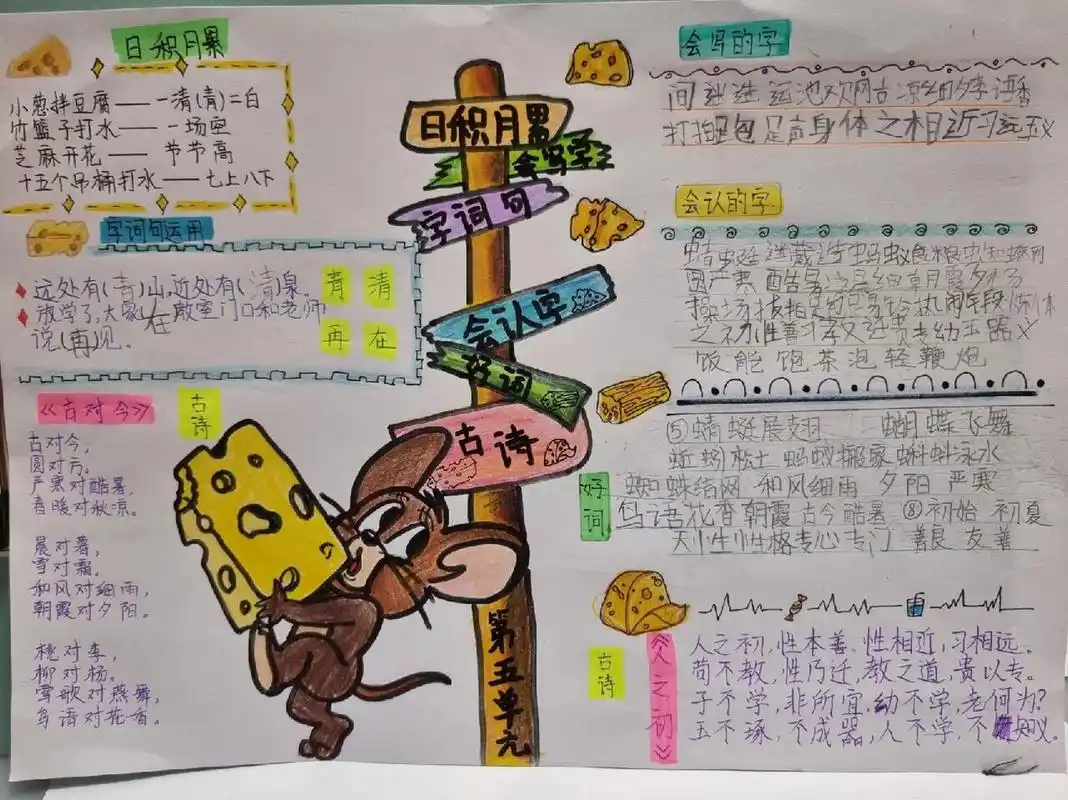 日积月累
小葱拌豆腐——一清(青)二白
竹篮子打水——一场空
芝麻开花——节节高
十五个吊桶打水——七上八下
字词句运用
远处有(青)山,近处有(清)泉。
放学了,大家在教室门口和老师
说(再)见。
青 清
再 在
《古对今》
古诗
古对今,
圆对方。
严寒对酷暑,
春暖对秋凉。
晨对暮,
雪对霜。
和风对细雨,
朝霞对夕阳。
桃对李,
柳对杨。
莺歌对燕舞,
鸟语对花香。
日积月累
会写字
字词句
会认字
好词
古诗
第五单元
会写的字
间迷造运池欢网古凉细夕李语香
打拍包足声身体之相近习远玉义
会认的字
饭能饱茶泡轻鞭炮
好词
⑤蜻蜓展翅 蝴蝶飞舞
蚯蚓松土 蚂蚁搬家 蝌蚪泳水
蜘蛛结网 和风细雨 夕阳 严寒
鸟语花香 朝霞 古今 酷暑 ⑧初始 初夏
天性 性格 专心 专门 善良 友善
古诗
《人之初》
人之初,性本善。性相近,习相远。
苟不教,性乃迁,教之道,贵以专。
子不学,非所宜,幼不学,老何为?
玉不琢,不成器,人不学,不知义。